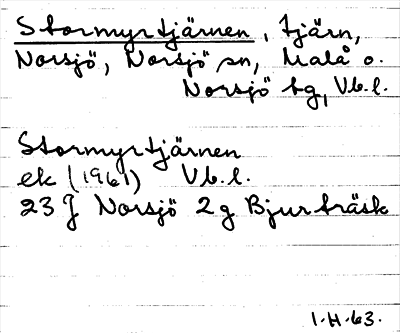 Stormyrtjärnen, tjärn,
Norsjö, Norsjö sn, Malå o.
Norsjö tg, Vb.l.
Stormyrtjärnen
ek (1961) Vb.l.
23 J Norsjö 2 g Bjurträsk
I.H.63.